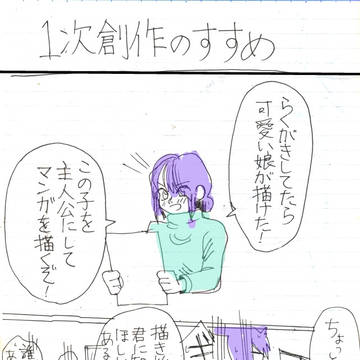 1次創作のすすめ
らくがきしてたら
可愛い娘が描けた!
この子を
主人公にして
マンガを描くぞ!
ちょ
描き
君に
ほし
ある